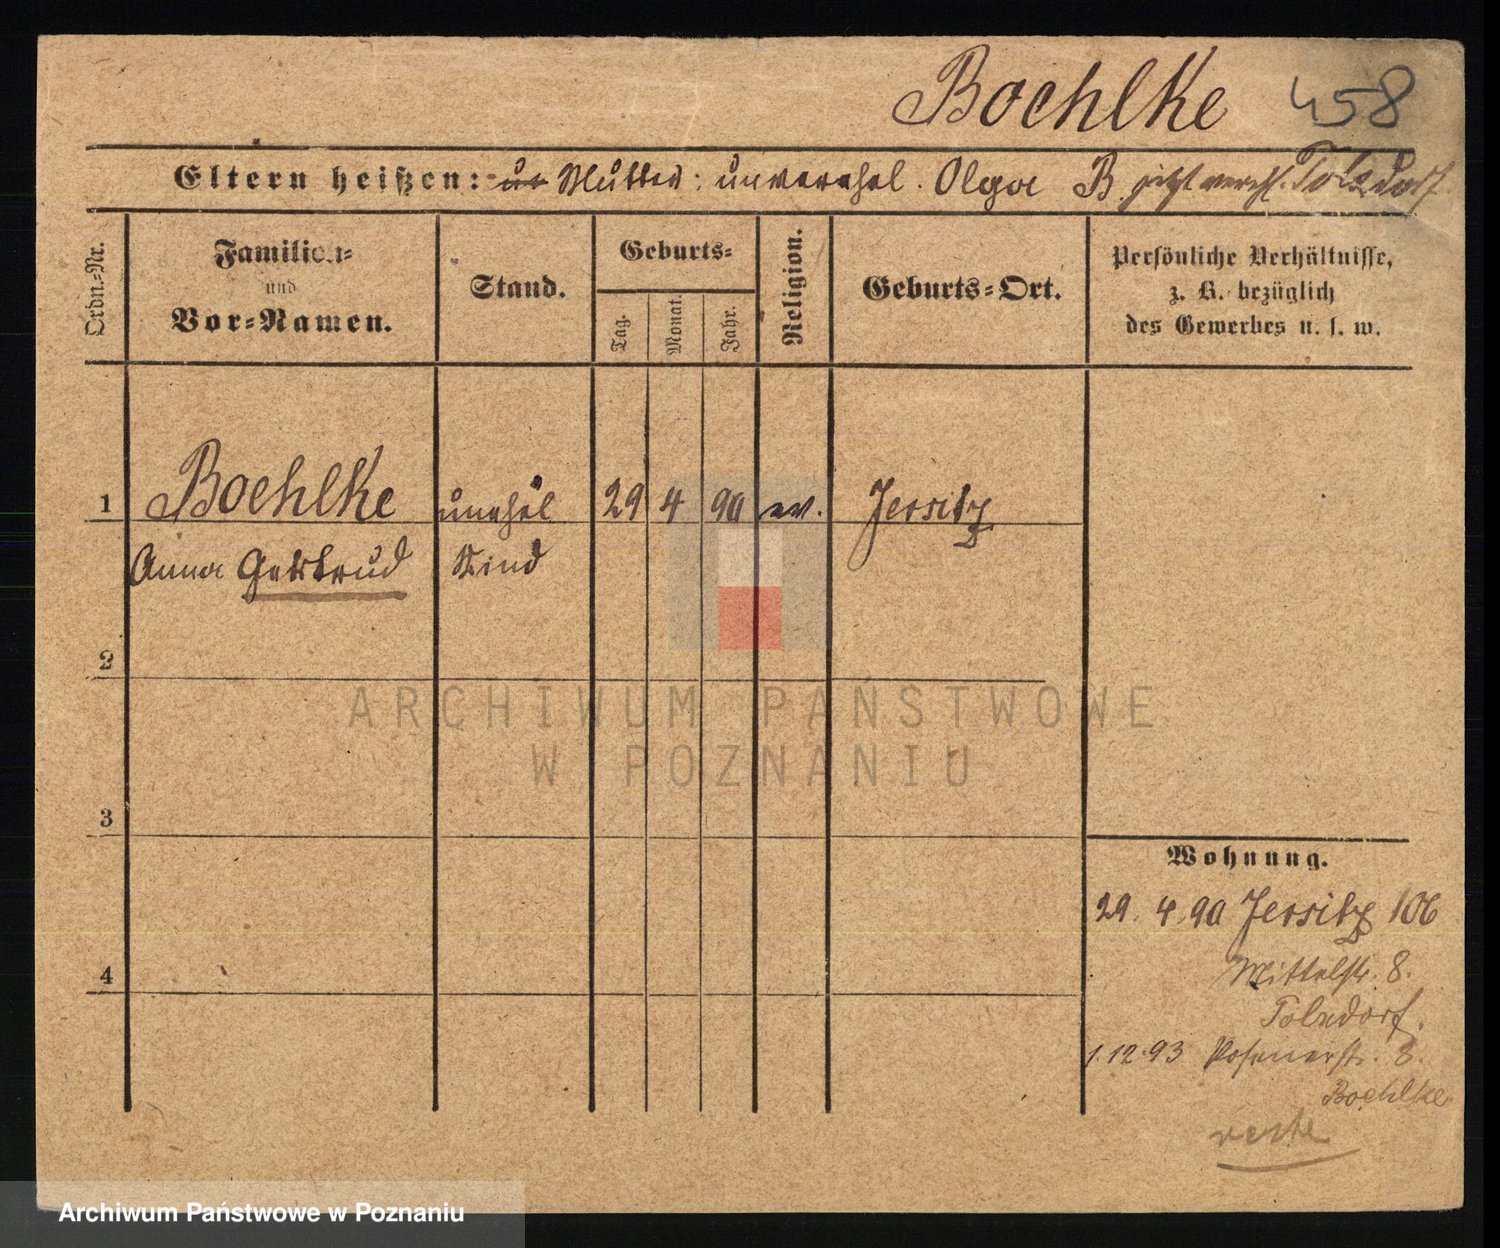 Boehlke 458
Eltern heißen: Mutter: unverehel. Olga B. jetzt verehl. Tolxdorf
Ordn.=Nr.
Familien=
und
Vor=Namen.
Stand.
Geburts=
Tag.
Monat.
Jahr.
Religion.
Geburts=Ort.
Persönliche Verhältnisse,
z. B. bezüglich
des Gewerbes u. s. w.
1 Boehlke unehel 29 4 90 ev. Jersitz
Anna Gertrud Kind
2
3
4
Wohnung.
29. 4. 90 Jersitz 106
Mittelstr. 8.
Tolxdorf.
1.12.93 Posenerstr. 8.
Boehlke
ARCHIWUM PAŃSTWOWE
W POZNANIU
Archiwum Państwowe w Poznaniu